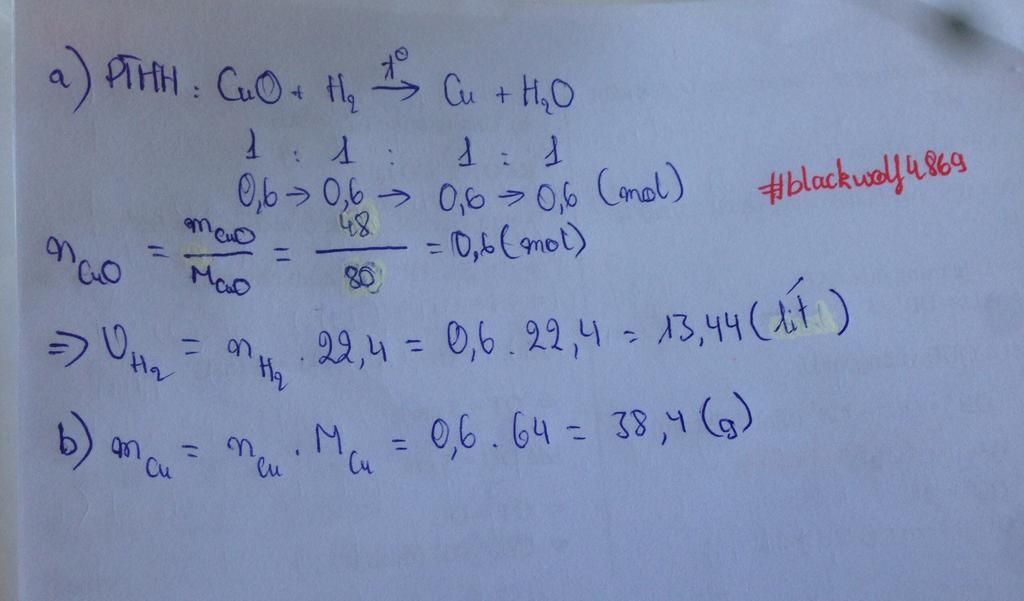 a) PTHH: CuO + H₂ →(t⁰) Cu + H₂O
1 : 1 : 1 : 1
0,6 → 0,6 → 0,6 → 0,6 (mol)
#blackwolf4869
n_CuO = m_CuO / M_CuO = 48 / 80 = 0,6 (mol)
⇒ V_H₂ = n_H₂ . 22,4 = 0,6 . 22,4 = 13,44 (lít)
b) m_Cu = n_Cu . M_Cu = 0,6 . 64 = 38,4 (g)